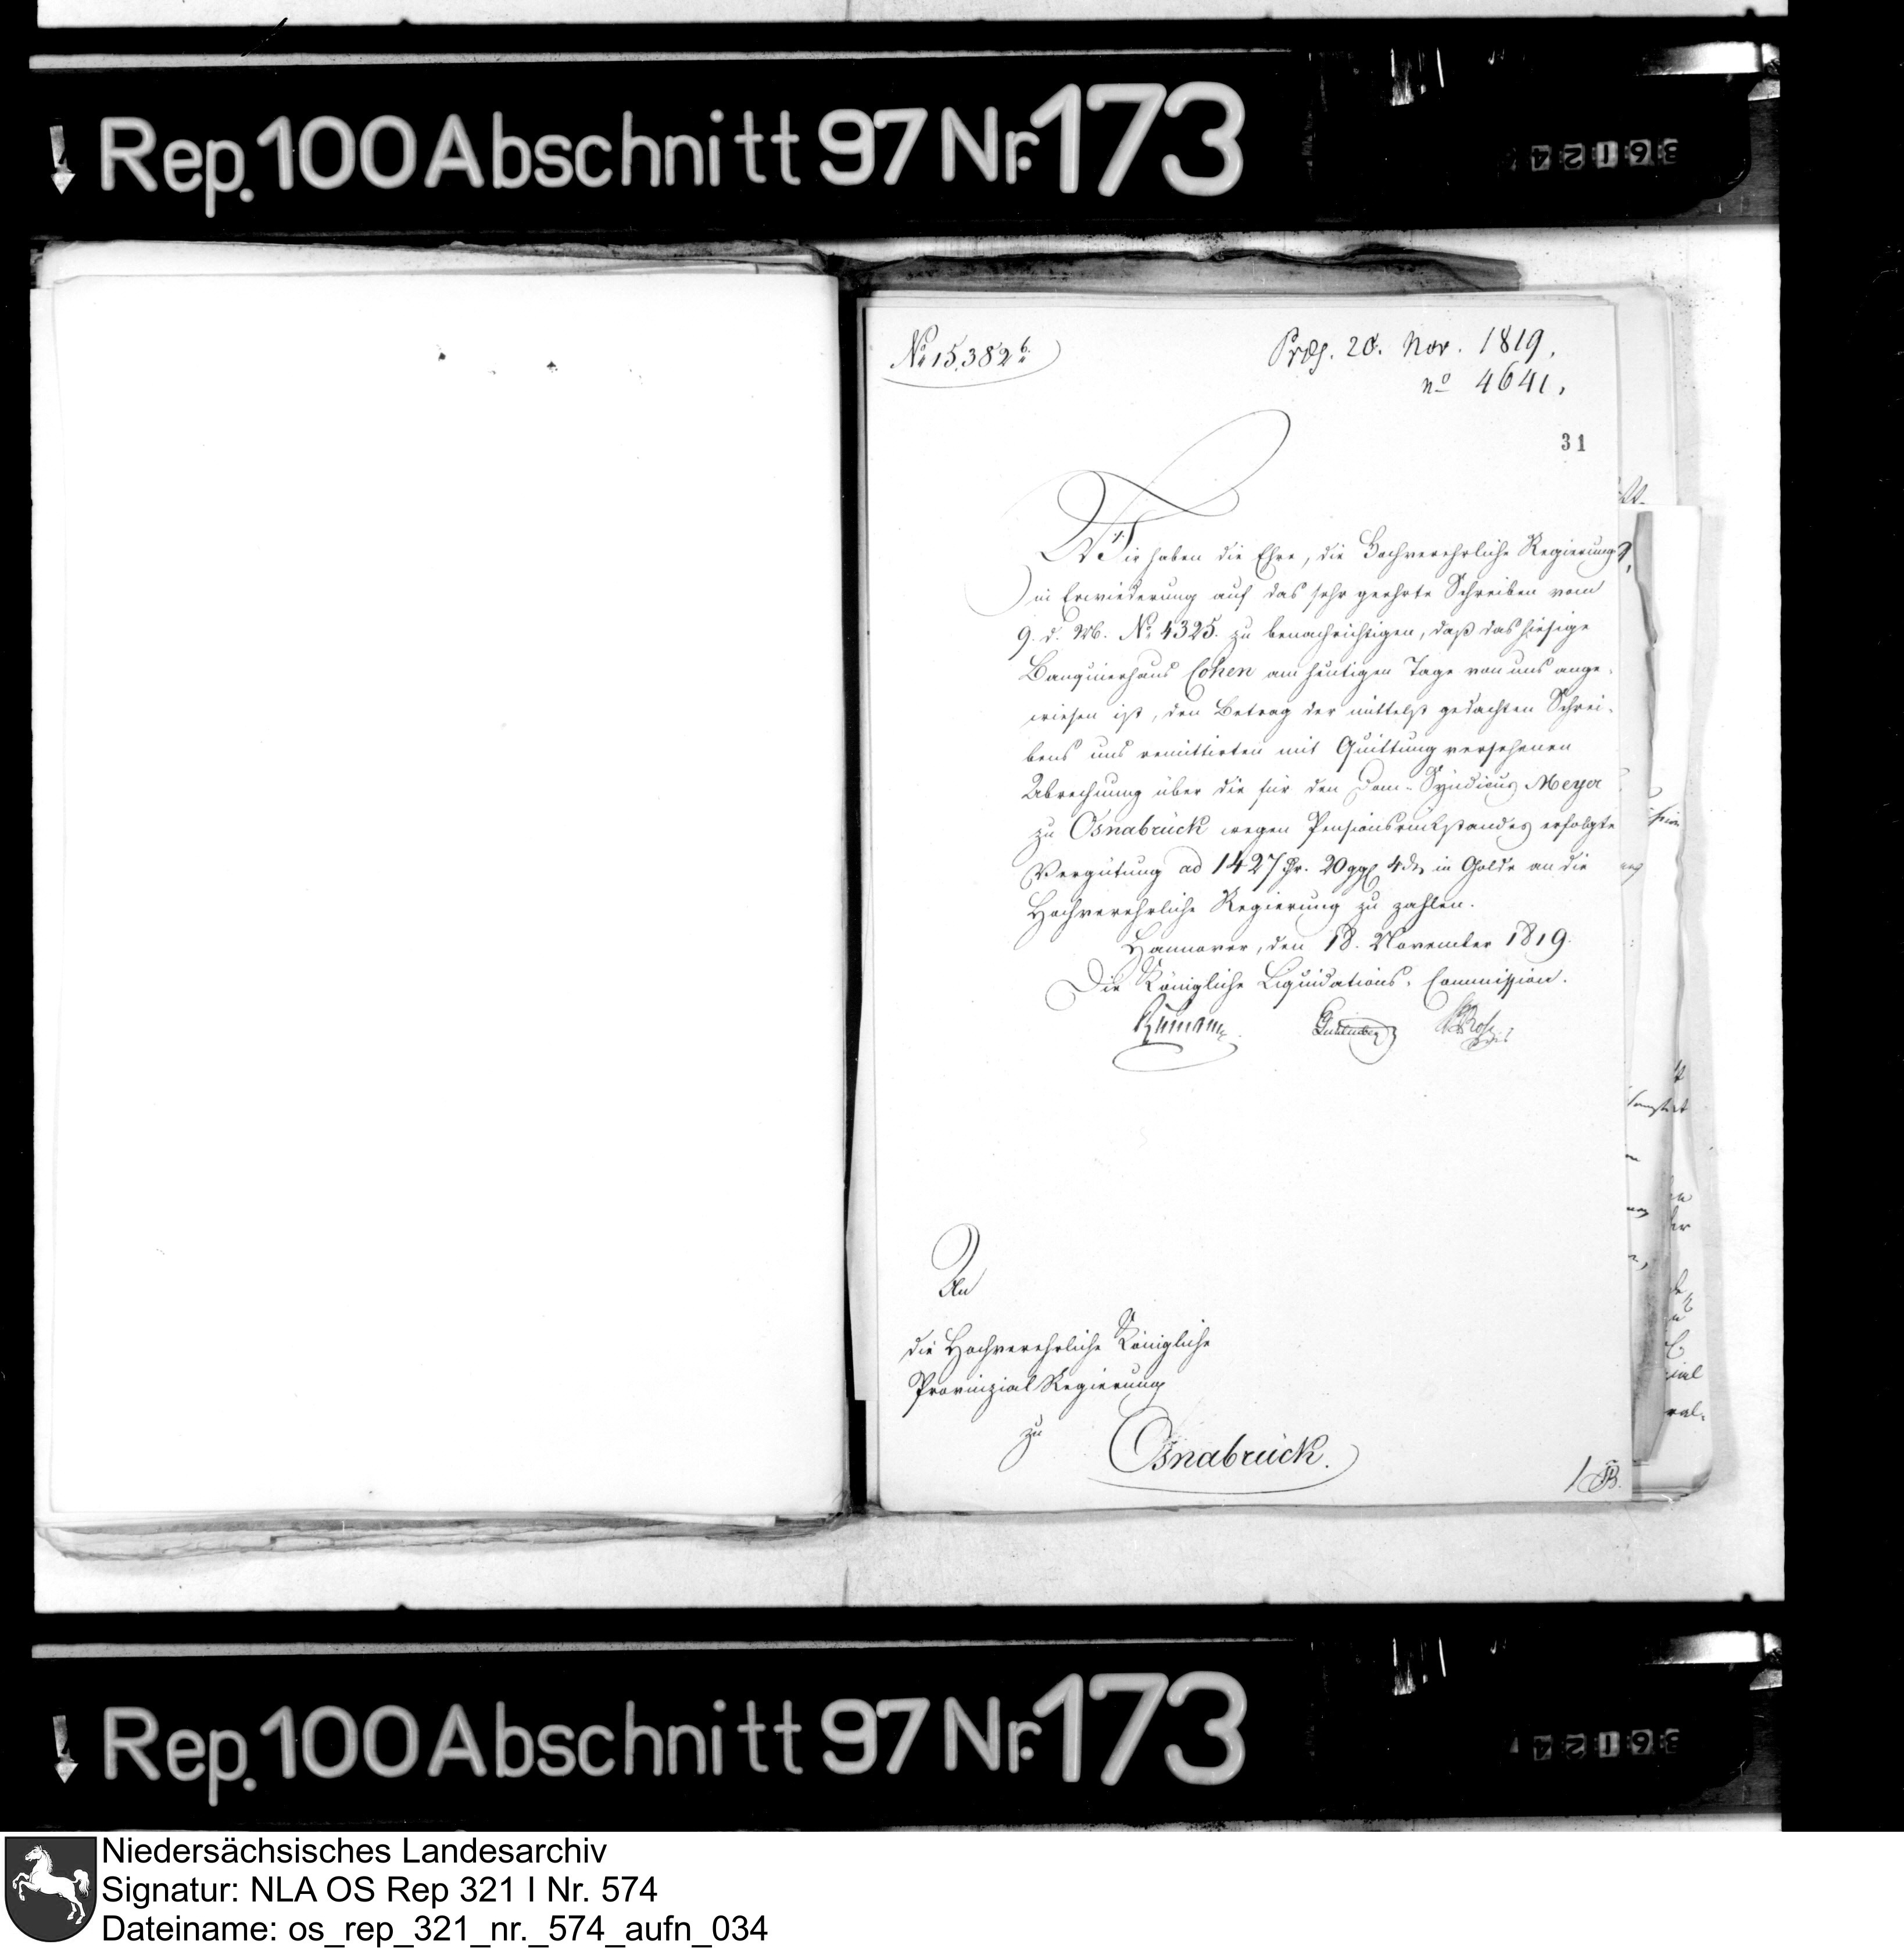 Rep. 100 Abschnitt 97 Nr. 173
No 15,382 b.
Præs. 20. Nov. 1819.
no 4641.
31
Wir haben die Ehre, die Hochverehrliche Regierung,
in Erwiederung auf das sehr geehrte Schreiben vom
9. d. M. No 4325. zu benachrichtigen, daß das hiesige
Banquierhaus Cohen am heutigen Tage von uns ange-
wiesen ist, den Betrag der mittelst gedachten Schrei-
bens uns remittirten mit Quittung versehenen
Abrechnung über die für den Dom-Syndicus Meyer
zu Osnabrück wegen Pensionsrückstandes erfolgte
Vergütung ad 1427 Thr. 20 ggl 4 d in Golde an die
Hochverehrliche Regierung zu zahlen.
Hannover, den 18. November 1819.
Die Königliche Liquidations-Commission.
Rumann
An
die Hochverehrliche Königliche
Provinzial Regierung
zu
Osnabrück.
Rep. 100 Abschnitt 97 Nr. 173
Niedersächsisches Landesarchiv
Signatur: NLA OS Rep 321 I Nr. 574
Dateiname: os_rep_321_nr._574_aufn_034